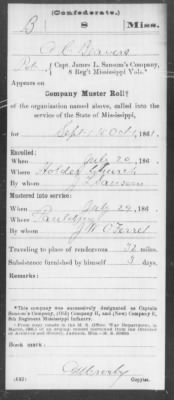 (Confederate.)
B 8 Miss.
Pvt., Capt. James L. Sansom's Company,
8 Reg't Mississippi Vols.*
Appears on
Company Muster Roll†
of the organization named above, called into the
service of the State of Mississippi,
for Sept 1 & Oct 1, 1861.
Enrolled:
When July 20, 1861.
Where Holder Church
By whom J L Sansom
Mustered into service:
When July 29, 1861.
Where Paulding
By whom J W O'Ferrel
Traveling to place of rendezvous 32 miles.
Subsistence furnished by himself 3 days.
Remarks:
*This company was successively designated as Captain
Sansom's Company, (Old) Company H, and (New) Company E,
8th Regiment Mississippi Infantry.
Book mark:
(632)
Copyist.